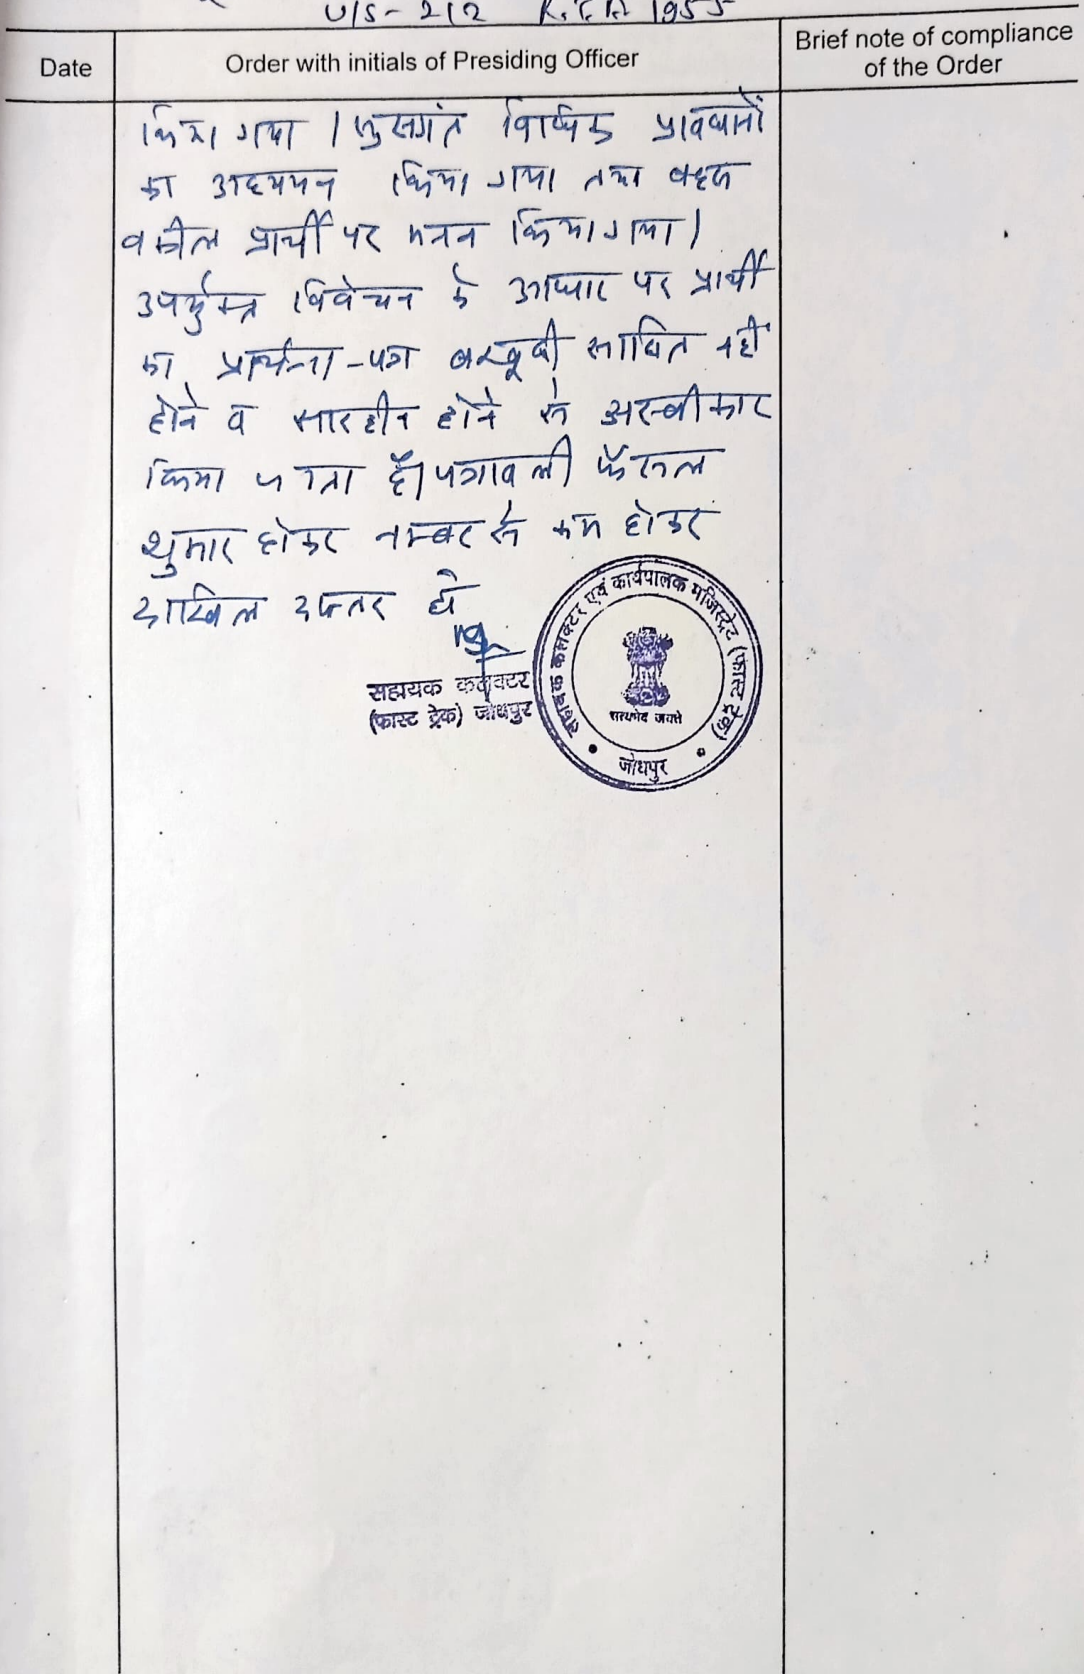 U/S - 212 R.T.A 1955
Date
Order with initials of Presiding Officer
Brief note of compliance
of the Order
किया गया । सुसगंत विधिक प्रावधानों
का अध्ययन किया गया तथा बहस
वकील प्रार्थी पर मनन किया गया।
उपर्युक्त विवेचन के आधार पर प्रार्थी
का प्रार्थना-पत्र बखूबी साबित नही
होने व सारहीन होने से अस्वीकार
किया जाता है। पत्रावली फैसल
शुमार होकर नम्बर से कम होकर
दाखिल दफ्तर हो
सहायक कलक्टर
(फास्ट ट्रेक) जोधपुर
सहायक कलक्टर एवं कार्यपालक मजिस्ट्रेट (फास्ट ट्रेक)
सत्यमेव जयते
जोधपुर